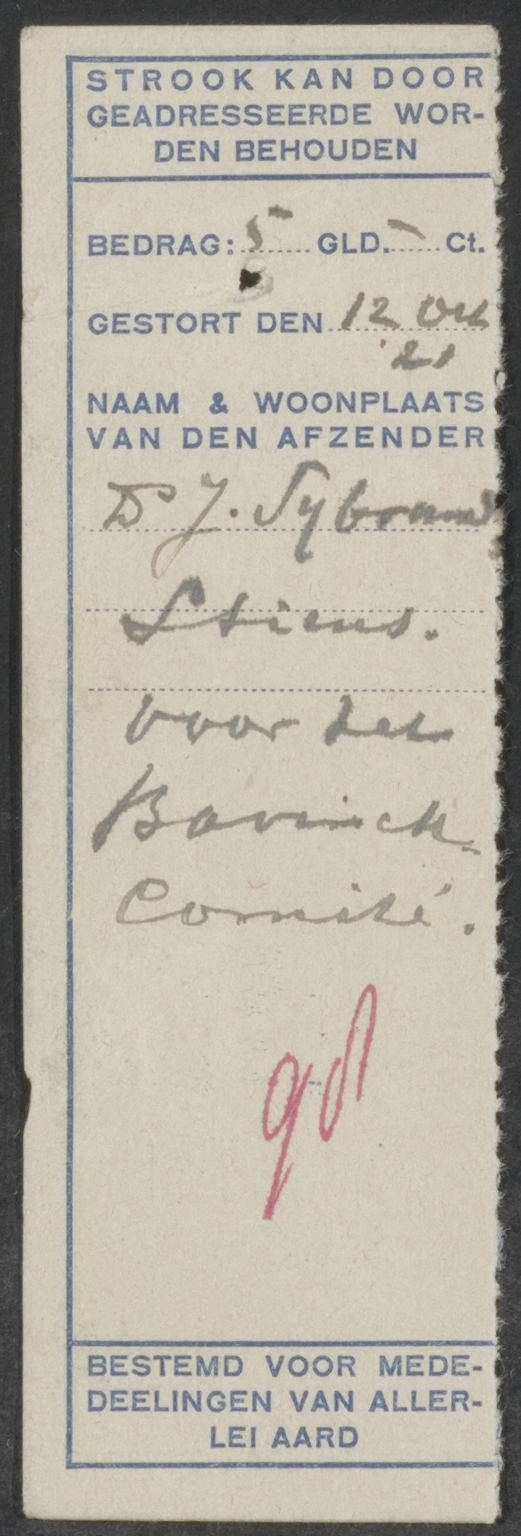 STROOK KAN DOOR
GEADRESSEERDE WOR-
DEN BEHOUDEN
BEDRAG: 5 GLD. – Ct.
GESTORT DEN 12 Oct
'21
NAAM & WOONPLAATS
VAN DEN AFZENDER
Ds J. Sybrandy
Stiens.
voor het
Bavinck-
Comité.
BESTEMD VOOR MEDE-
DEELINGEN VAN ALLER-
LEI AARD